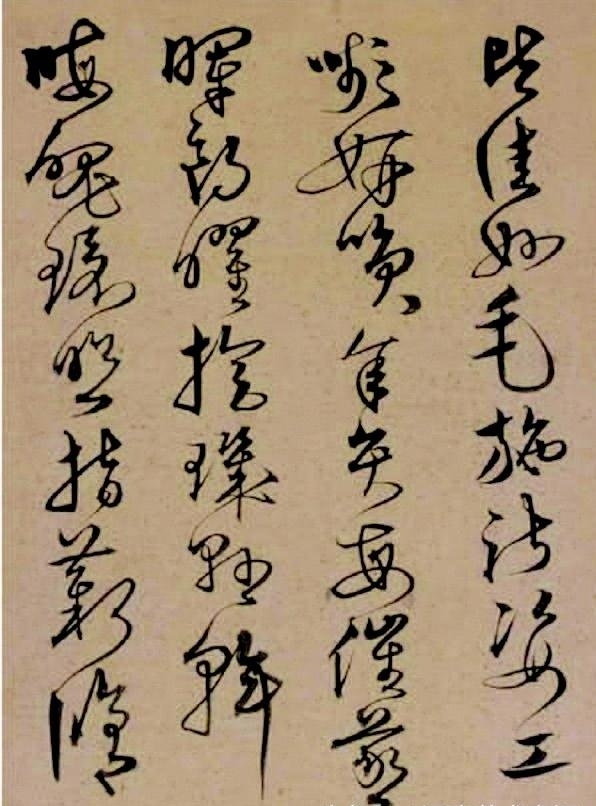 皆佳妙毛施淑姿工
嚬妍笑年矢每催羲
暉朗曜旋璣懸斡
晦魄環照指薪脩